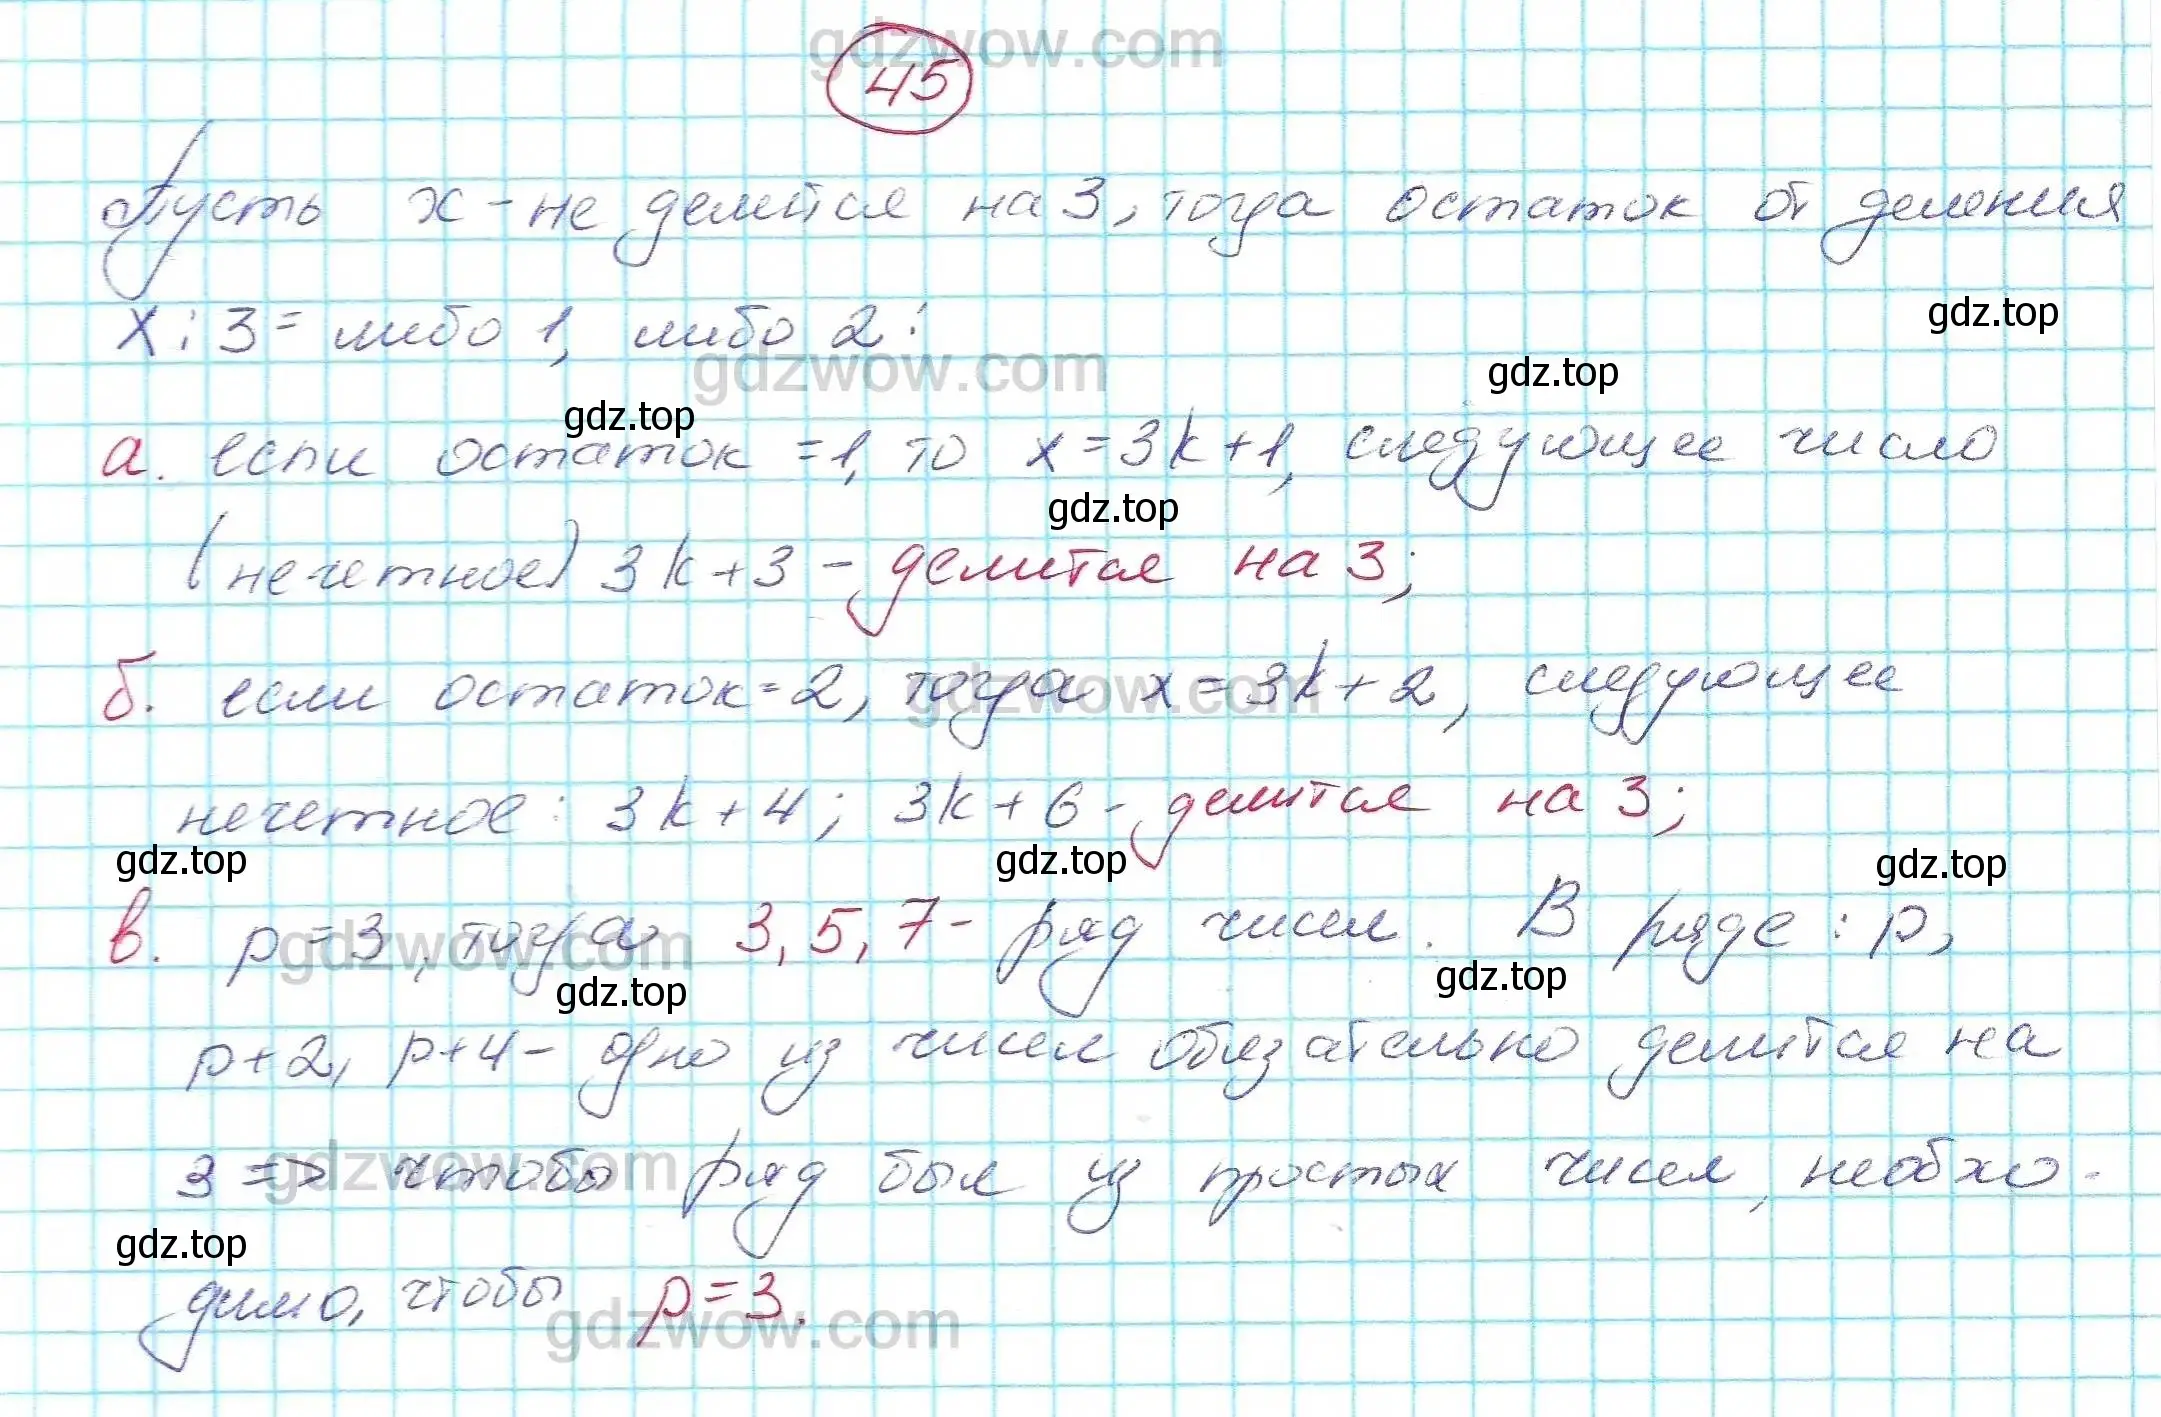 gdzwow.com
45
Пусть x - не делится на 3, тогда остаток от деления
gdz.top
x : 3 = либо 1, либо 2:
gdzwow.com
gdz.top
gdz.top
а. если остаток = 1, то x = 3k + 1, следующее число
gdz.top
(нечетное) 3k + 3 - делится на 3;
б. если остаток = 2, тогда x = 3k + 2, следующее
gdzwow.com
нечетное: 3k + 4; 3k + 6 - делится на 3;
gdz.top
gdz.top
gdz.top
в. p = 3, тогда 3, 5, 7 - ряд чисел. В ряде: p,
gdzwow.com
gdz.top
gdz.top
p + 2, p + 4 - одно из чисел обязательно делится на
3 => чтобы ряд был из простых чисел, необхо-
gdzwow.com
gdz.top
димо, чтобы p = 3.
gdzwow.com